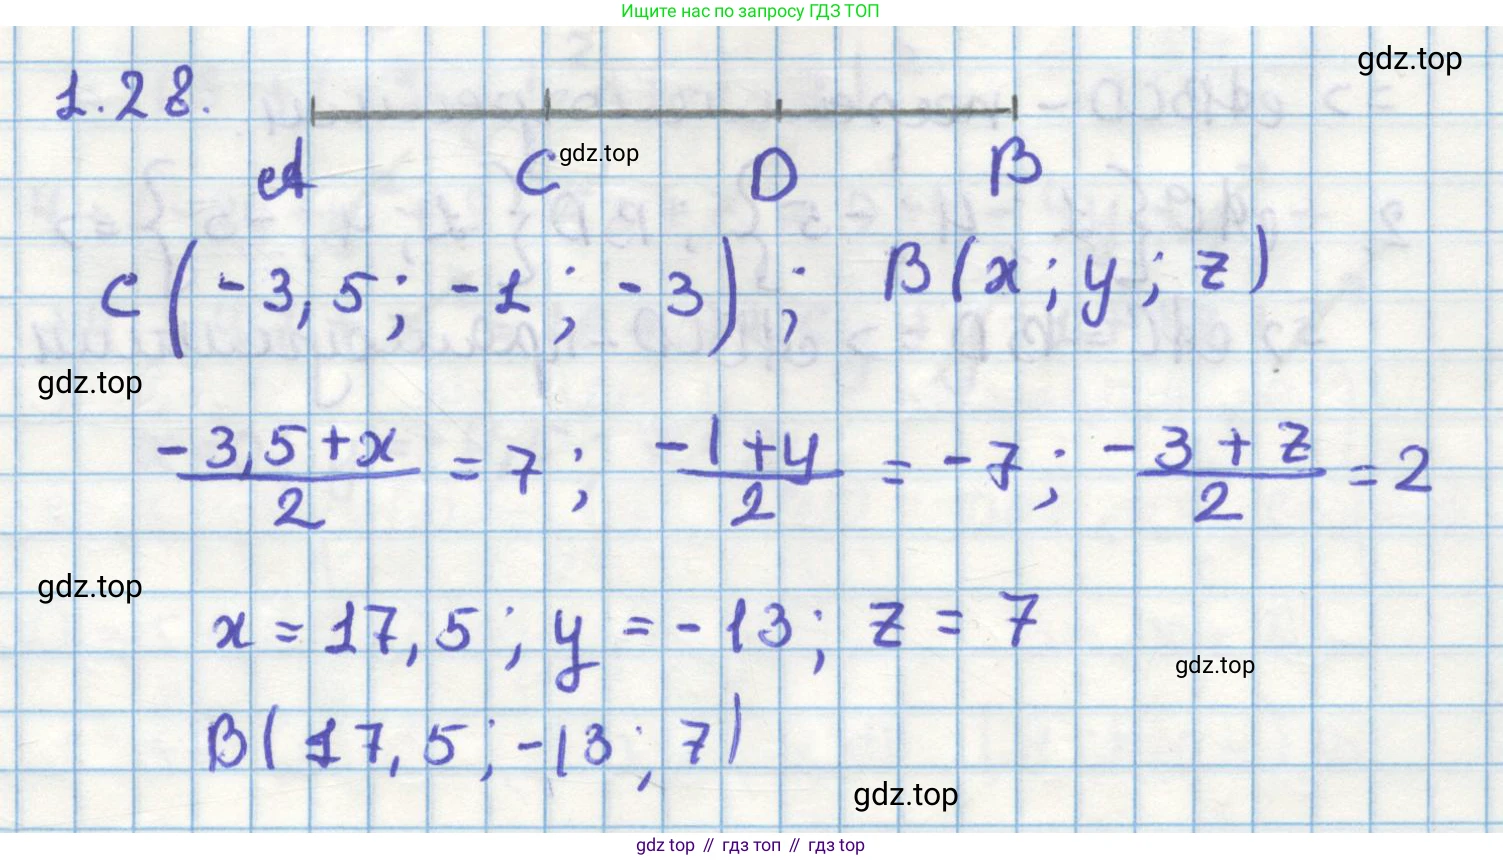 Ищите нас по запросу ГДЗ ТОП
gdz.top
1.28.
A C D B
gdz.top
C(-3,5; -1; -3); B(x; y; z)
gdz.top
(-3,5+x)/2 = 7; (-1+y)/2 = -7; (-3+z)/2 = 2
gdz.top
x = 17,5; y = -13; z = 7
gdz.top
B(17,5; -13; 7)
gdz.top
gdz top // гдз топ // гдз top